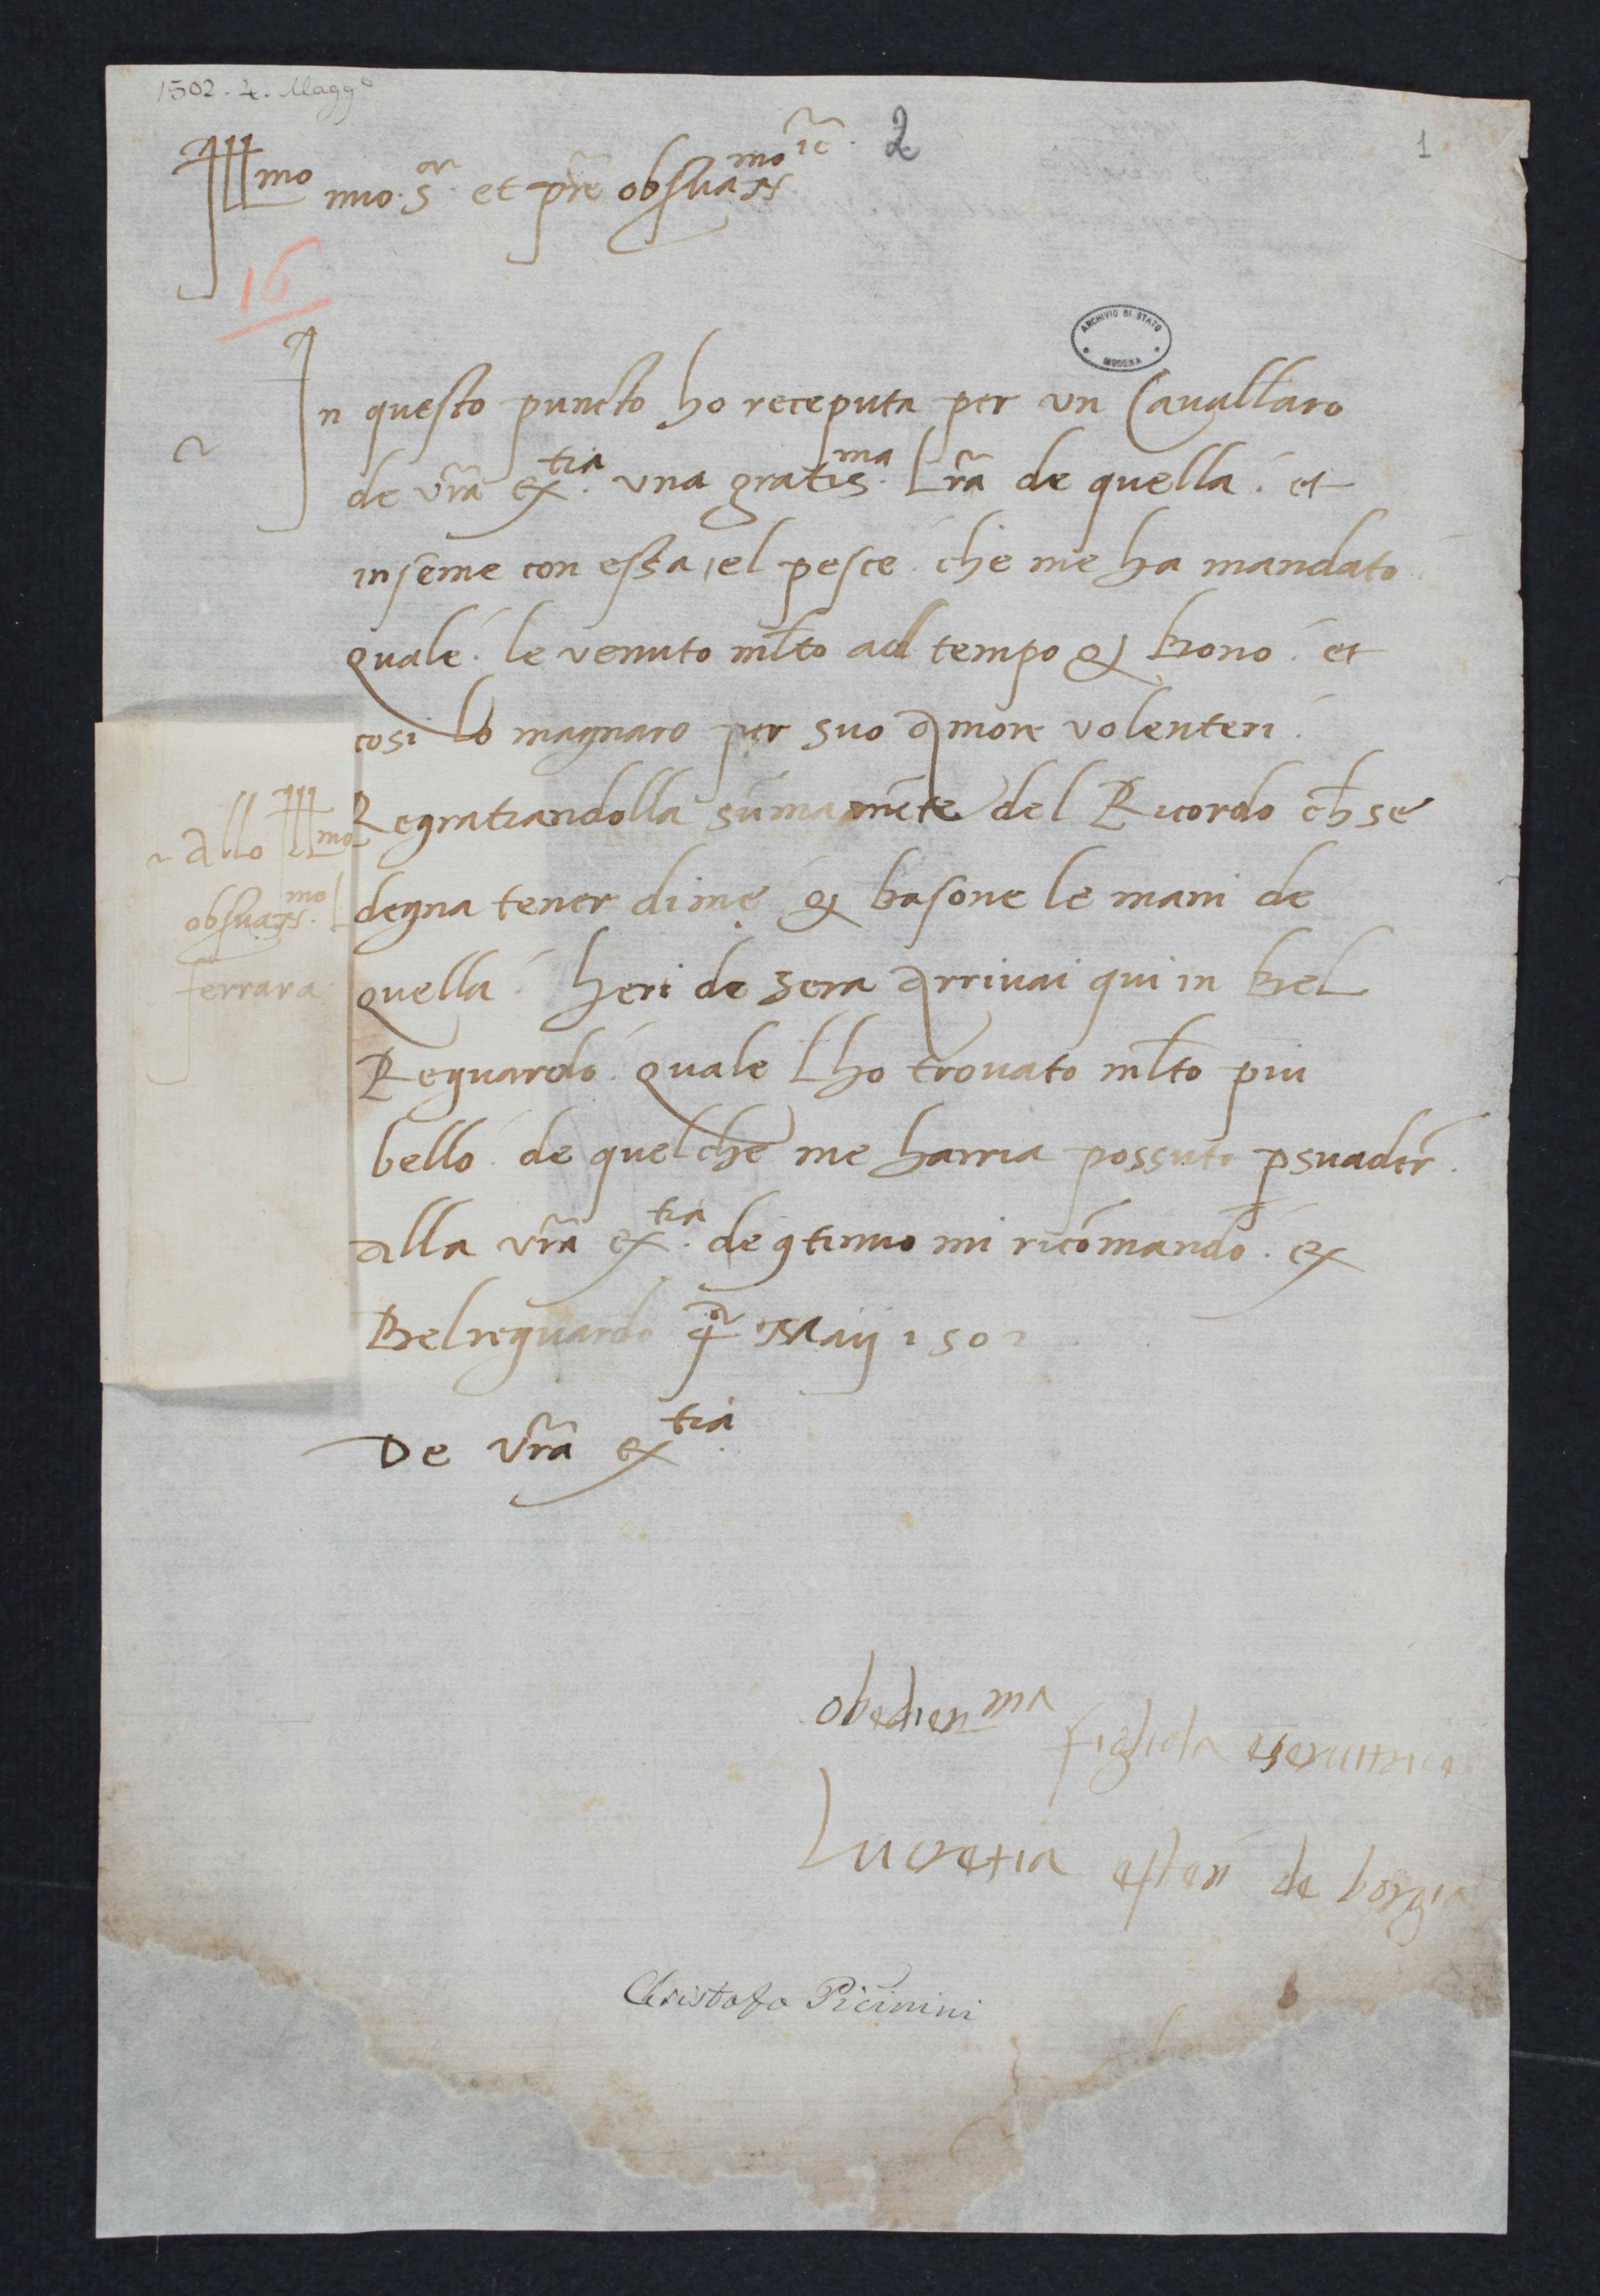 1502. 4. Magg.o
2
1
Ill.mo mio S.or et pr̃e obser.mo etc.
16
ARCHIVIO DI STATO
MODENA
In questo puncto ho receputa per un Cavallaro
de vr̃a ex.tia una gratis.ma Lr̃a de quella. et
inseme con essa, el pesce che me ha mandato
quale le venuto ml̃to ad tempo & bono. et
cosi lo magnaro per suo Amore volenteri.
Regratiandolla sũmamẽte del Ricordo ch̃ se
degna tener dime & basone le mani de
quella. heri de sera Arrivai qui in Bel
Reguardo. quale Lho trovato ml̃to piu
bello de quelche me harria possuto p̱suader̃.
alla vr̃a ex.tia de ꝯtinuo mi ricõmando. ex
Belreguardo 4 Maij 1502
De vr̃a ex.tia
Allo Ill.mo
ferrara
obedien.ma figliola e servitrice
Lucretia esteñ de borgia
Cristofo Picinini